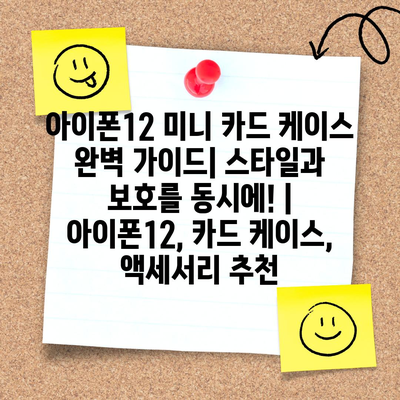 아이폰12 미니 카드 케이스
완벽 가이드| 스타일과
보호를 동시에! |
아이폰12, 카드 케이스,
액세서리 추천